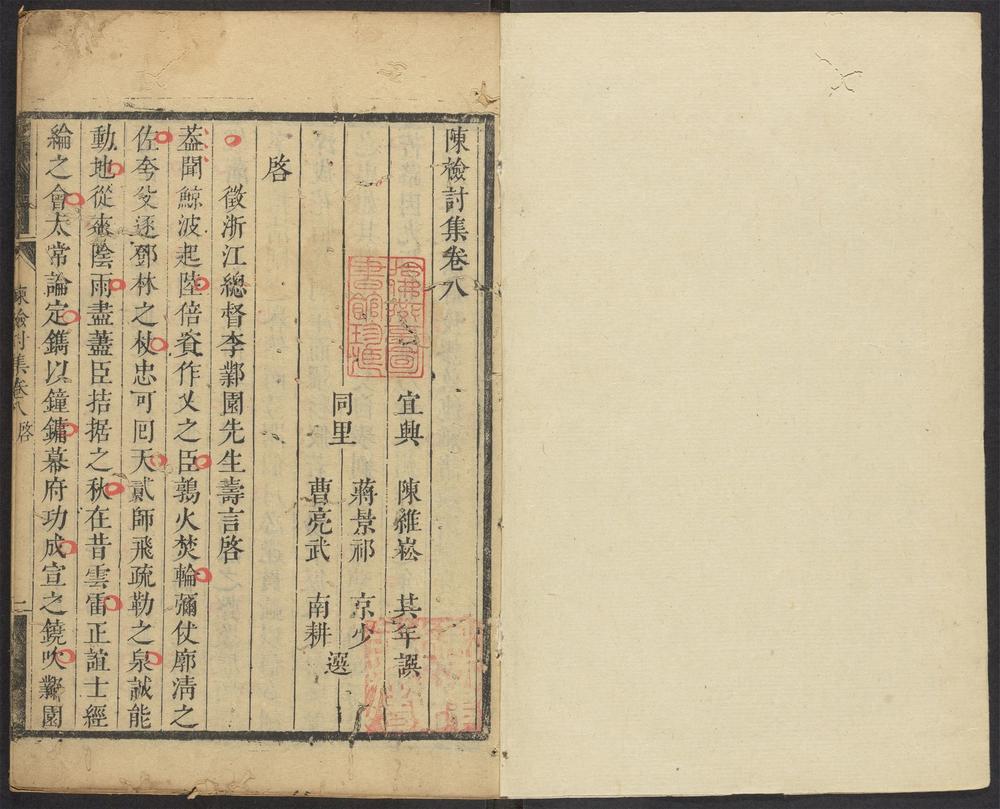 陳檢討集卷八
宜興 陳維崧 其年譔
蔣景祁 京少
同里 選
曹亮武 南耕
啓
徵浙江總督李鄴園先生壽言啓
葢聞鯨波起陸倍資作乂之臣鶉火焚輪彌仗廓淸之
佐夸父逐鄧林之杖忠可囘天貳師飛疏勒之泉誠能
動地從來陰雨盡藎臣拮据之秋在昔雲雷正誼士經
綸之會太常論定鐫以鐘鏞幕府功成宣之鐃吹鄴園
陳檢討集卷八 啓 一
哈佛燕京圖書館珍藏